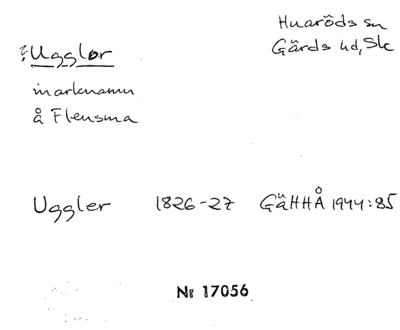 Huaröds sn
Gärds hd, Sk
Ugglor
marknamn
å Flensma
Uggler 1826-27 GäHHÅ 1944:85
Nr 17056